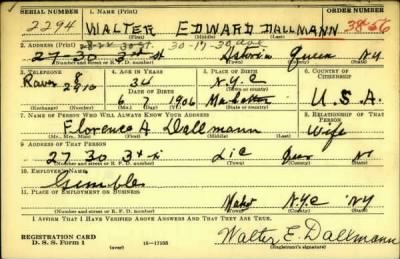 SERIAL NUMBER 1. NAME (Print) ORDER NUMBER
2294 WALTER EDWARD DALLMANN 3856
(First) (Middle) (Last)
2. ADDRESS (Print) 30-17-30 ave
27-30 3 st Astoria Queen NY
(Number and street or R. F. D. number) (Town) (County) (State)
3. TELEPHONE 4. AGE IN YEARS 5. PLACE OF BIRTH 6. COUNTRY OF CITIZENSHIP
Raven 8 2910 34 N.Y.C.
DATE OF BIRTH
6 8 1906 Manhattan U.S.A.
(Exchange) (Number) (Mo.) (Day) (Yr.) (Town or county) (State or country)
7. NAME OF PERSON WHO WILL ALWAYS KNOW YOUR ADDRESS 8. RELATIONSHIP OF THAT PERSON
Florence A. Dallmann Wife
(Mr., Mrs., Miss) (First) (Middle) (Last)
9. ADDRESS OF THAT PERSON
27 30 3 st LIC NY
(Number and street or R. F. D. number) (Town) (County) (State)
10. EMPLOYER'S NAME
Gimbles
11. PLACE OF EMPLOYMENT OR BUSINESS
NYC NY
(Number and street or R. F. D. number) (Town) (County) (State)
I AFFIRM THAT I HAVE VERIFIED ABOVE ANSWERS AND THAT THEY ARE TRUE.
REGISTRATION CARD
D. S. S. Form 1 (over) 16—17105 Walter E. Dallmann
(Registrant's signature)